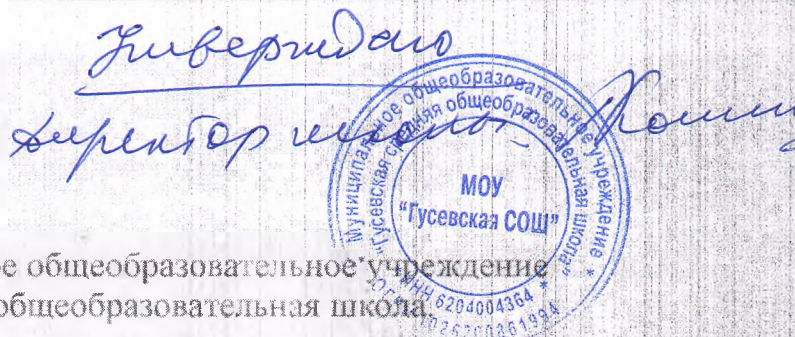 Утверждаю
директор школы
Муниципальное общеобразовательное учреждение *
"Гусевская средняя общеобразовательная школа"
МОУ
"Гусевская СОШ"
ИНН 6204004364 *
е общеобразовательное учреждение
общеобразовательная школа.